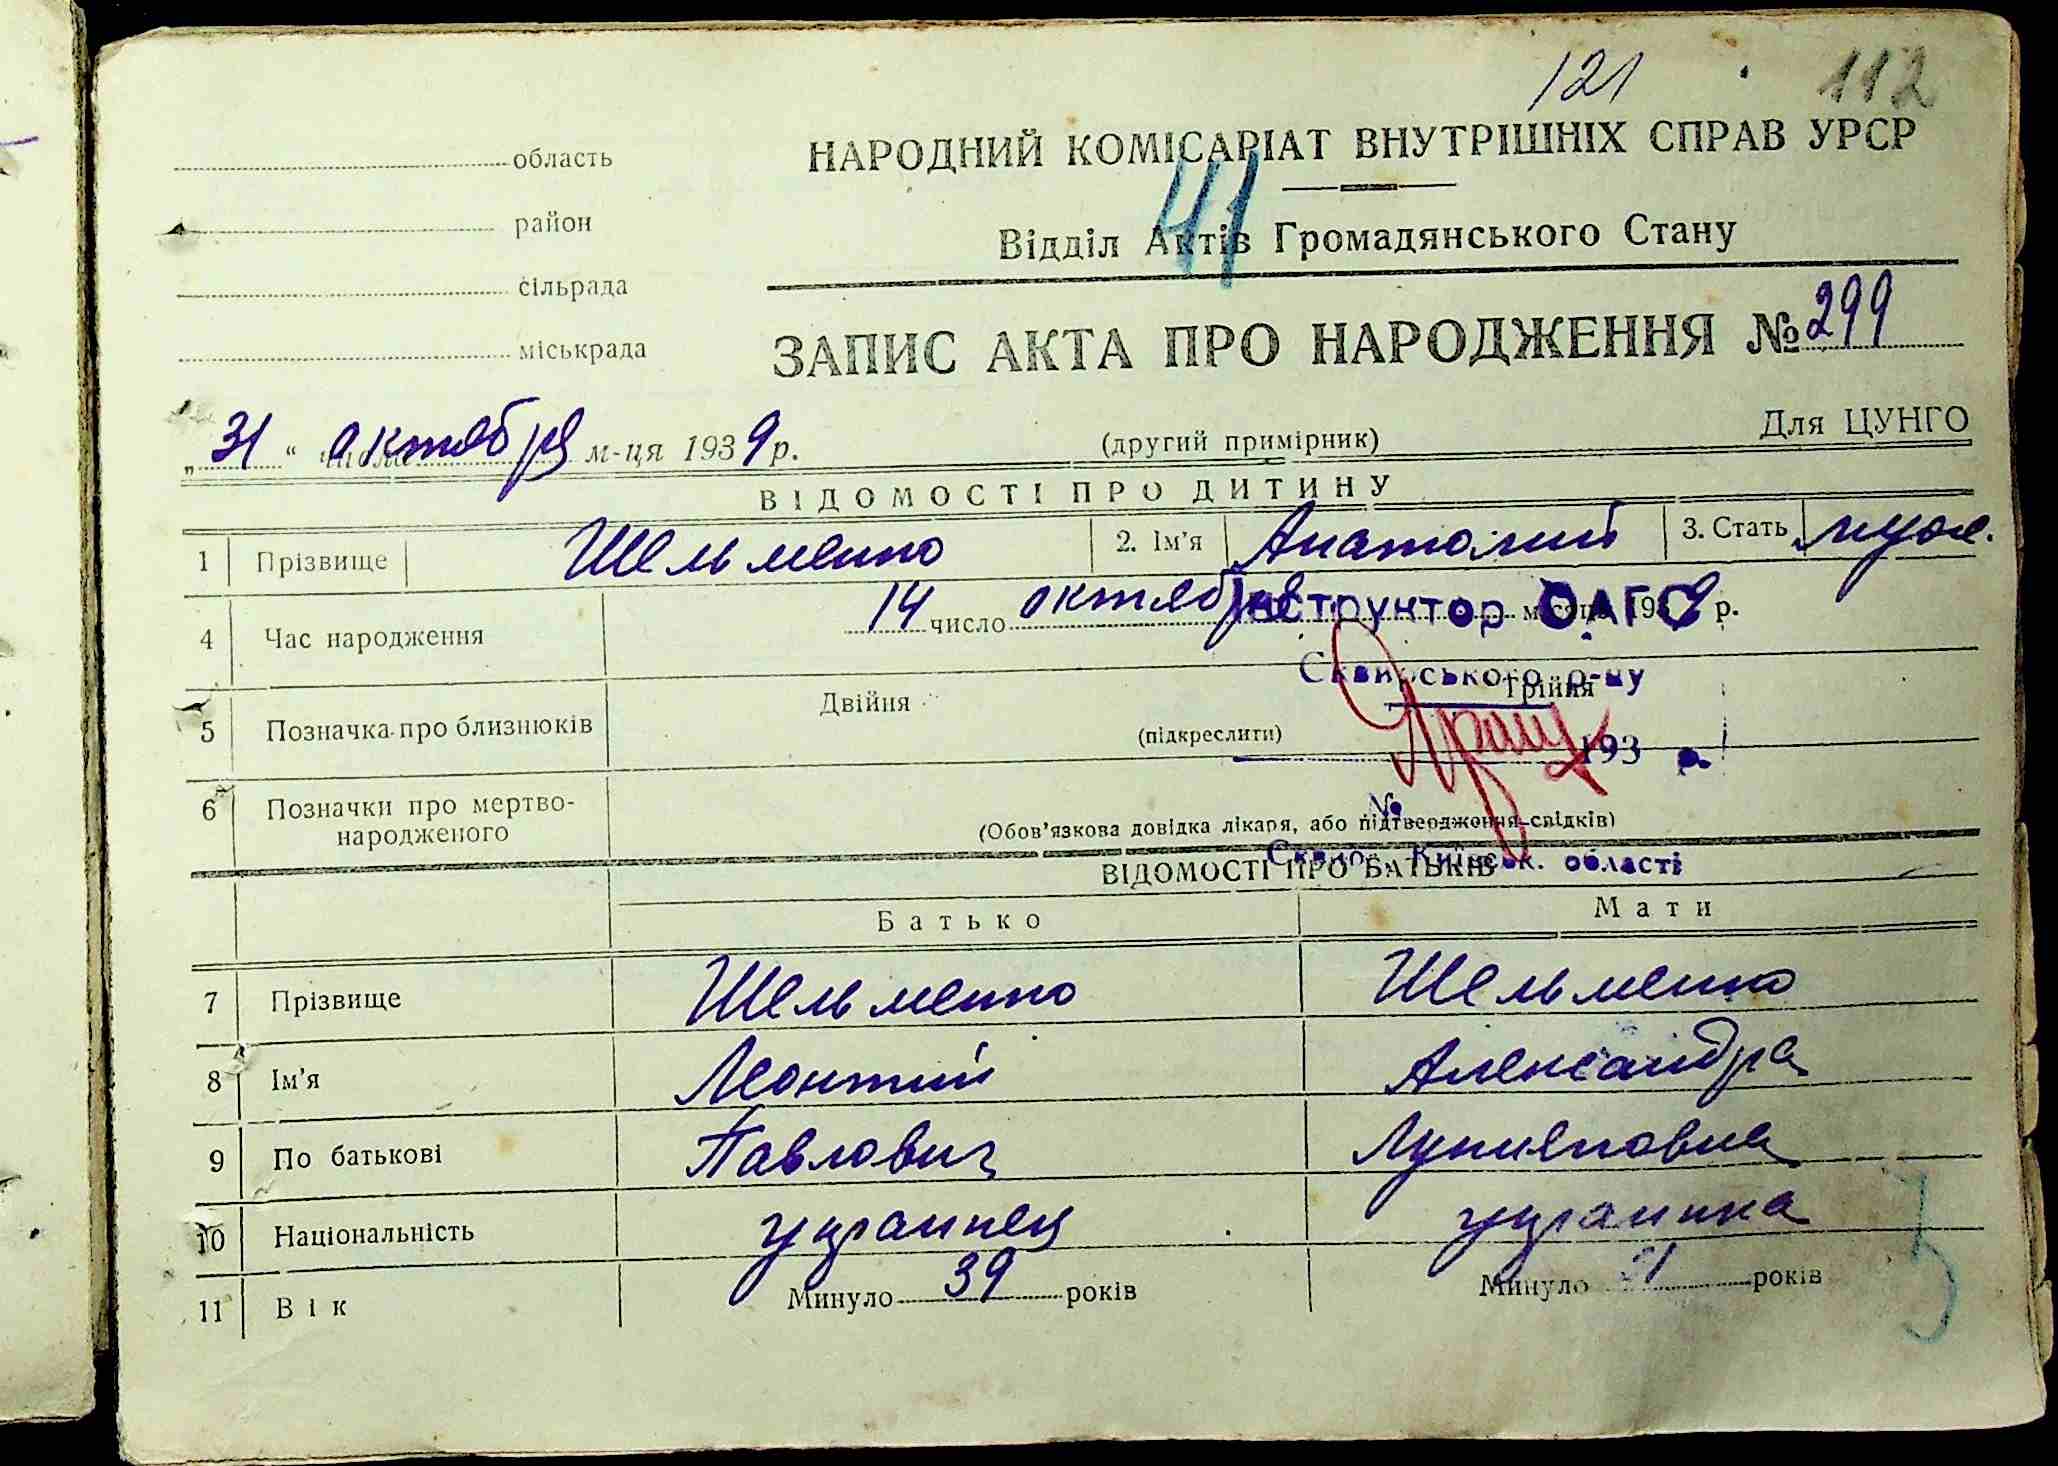 121 112
область
район
сільрада
міськрада
НАРОДНИЙ КОМІСАРІАТ ВНУТРІШНІХ СПРАВ УРСР
41
Відділ Актів Громадянського Стану
ЗАПИС АКТА ПРО НАРОДЖЕННЯ № 299
„31“ числа октября м-ця 1939 р.
(другий примірник)
Для ЦУНГО
ВІДОМОСТІ ПРО ДИТИНУ
1 Прізвище Шельменко 2. Ім'я Анатолий 3. Стать муж.
4 Час народження 14 число октября місяця 1939 р.
Інструктор ОАГС
Сквирського р-ну
5 Позначка про близнюків Двійня (підкреслити) Трійня
193 р.
№
6 Позначки про мертво-
народженого (Обов'язкова довідка лікаря, або підтвердження свідків)
Київськ. області
ВІДОМОСТІ ПРО БАТЬКІВ
Батько Мати
7 Прізвище Шельменко Шельменко
8 Ім'я Леонтий Александра
9 По батькові Павлович
10 Національність украинец украинка
11 Вік Минуло 39 років Минуло років